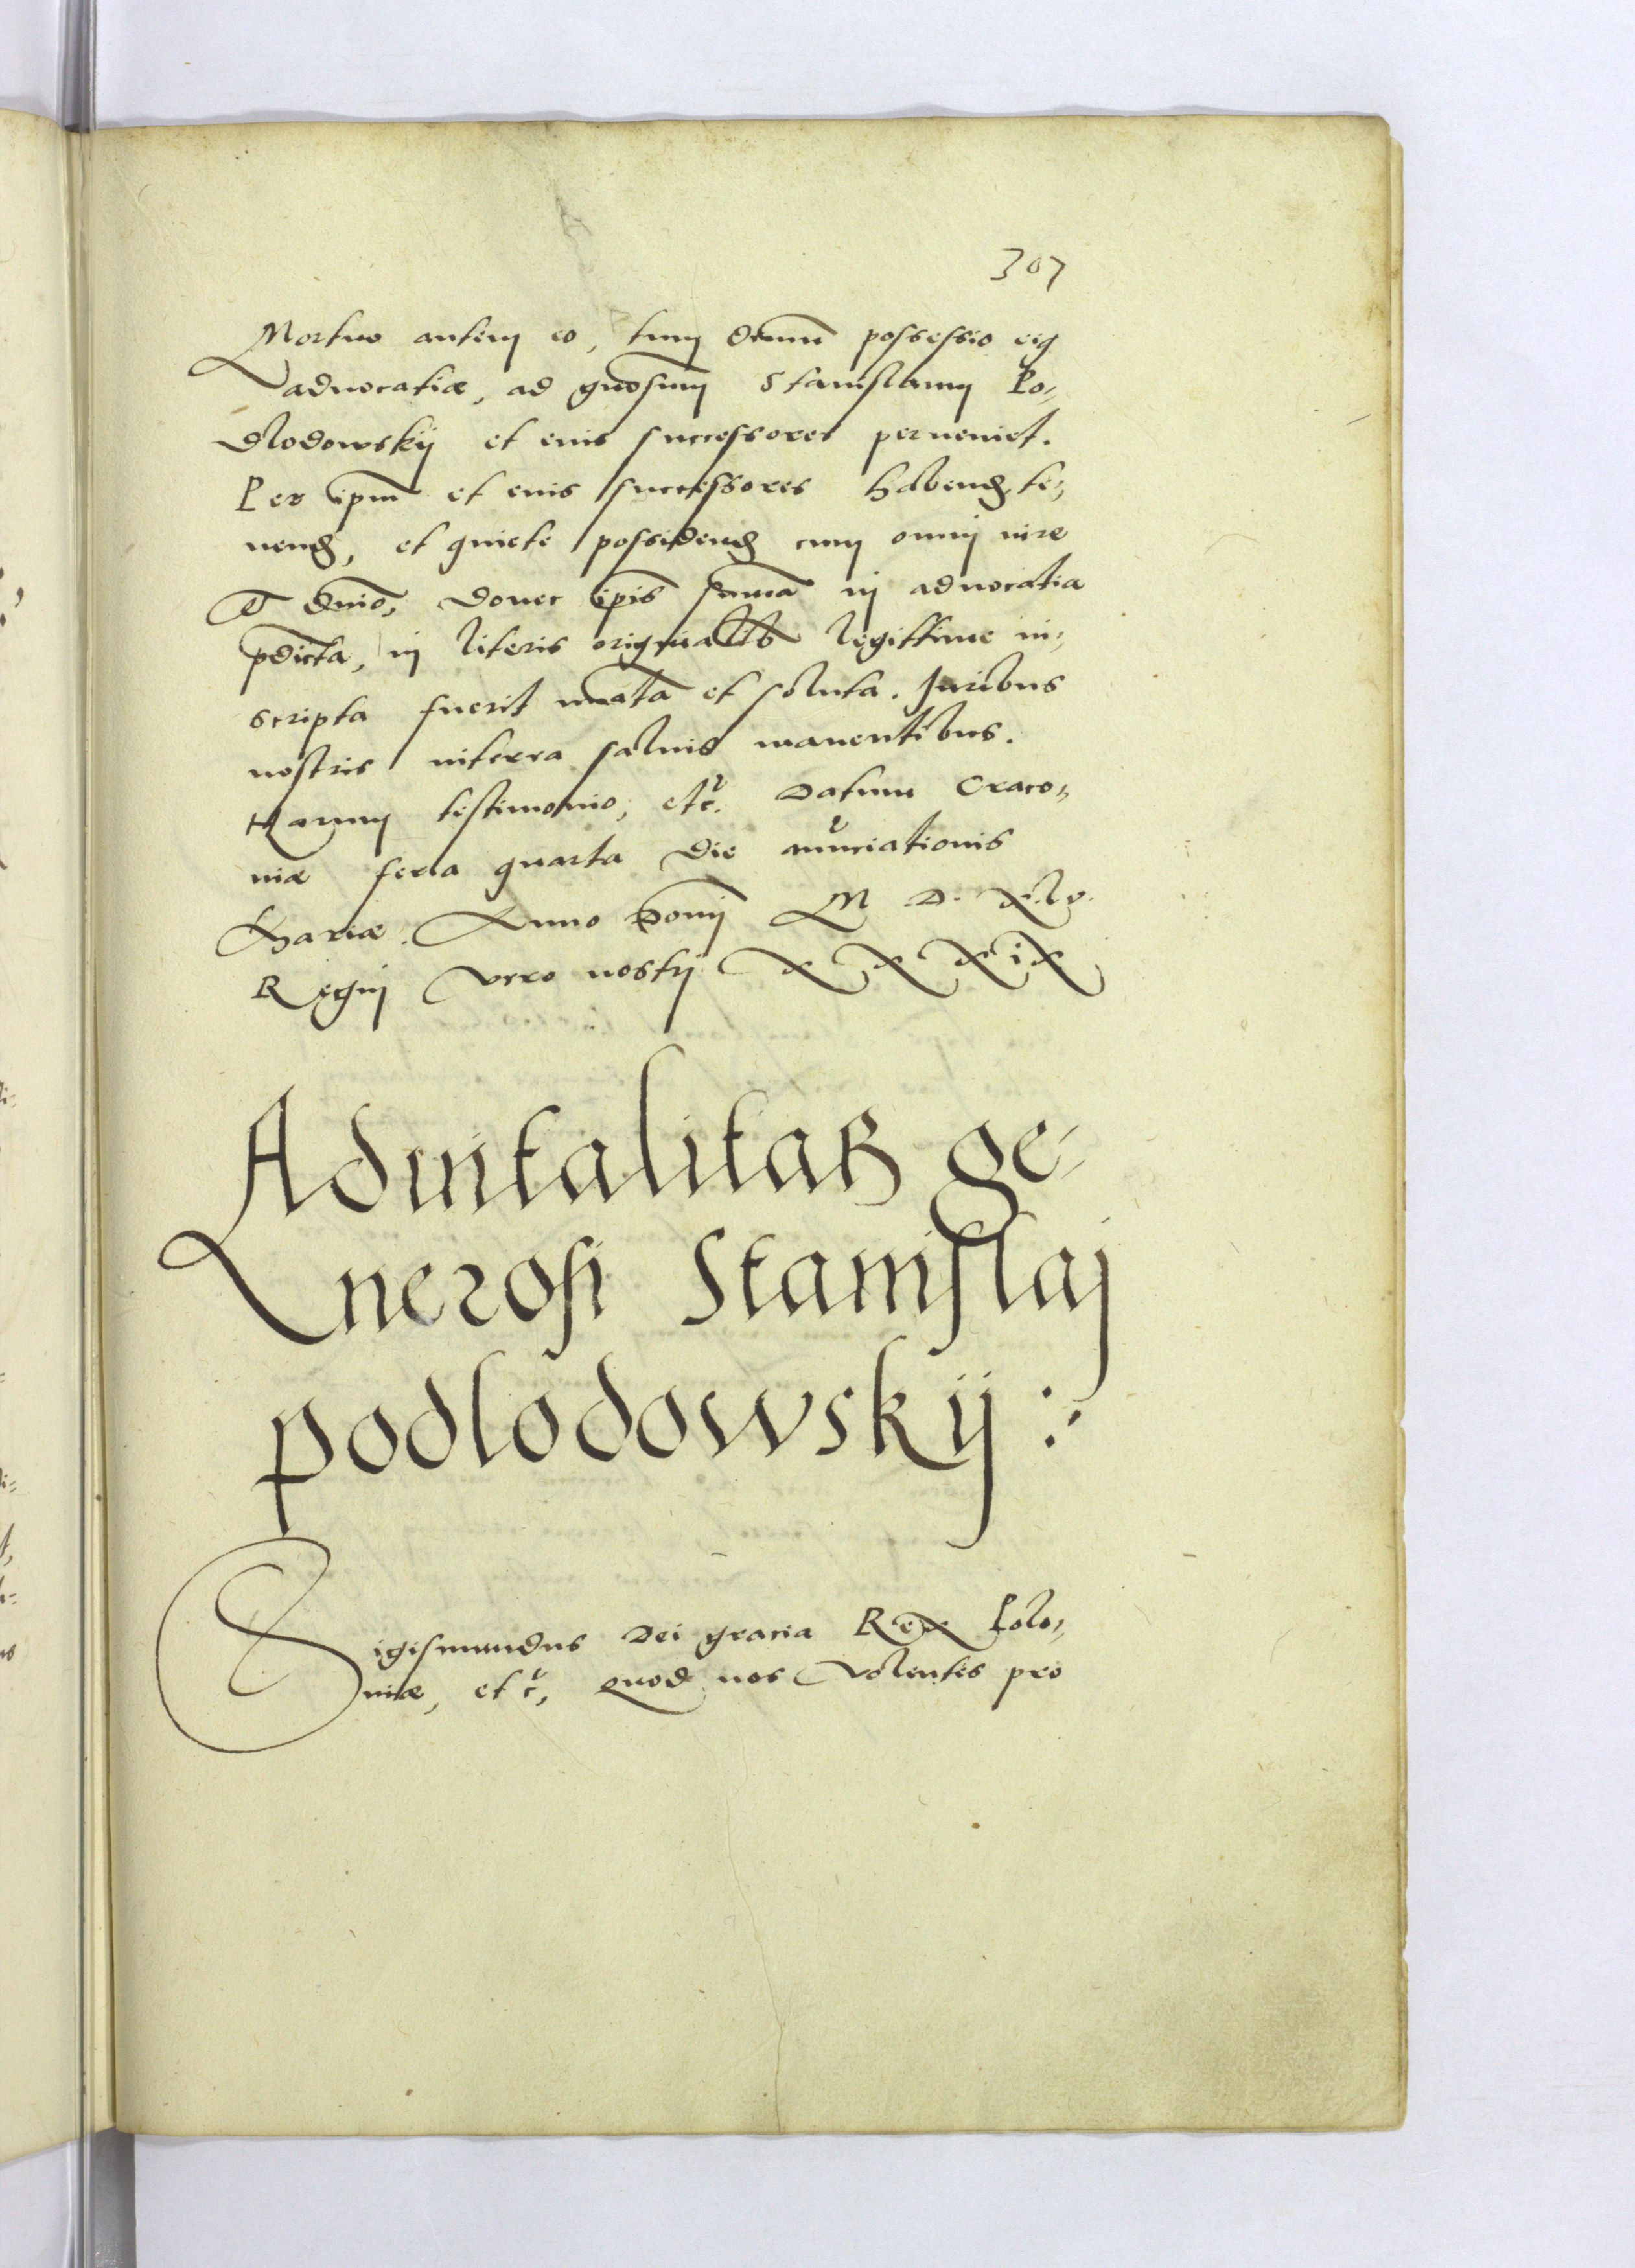 307
Mortuo autem eo, tum demum possessio eiꝯ
advocatiæ, ad gnosum Stanislaum Po-
dlodowskij et euis successores perveniet.
Per ipm̄ et euis successores habend, te-
nend, et quiete possidend cum omni iure
et dnio, donec ipīs summa in advocatia
pdicta, in literis originalib legittime in-
scripta fuerit nūata et soluta. Juribus
nostris interea salvis manentibus.
Harum testimonio, etc. Datum Craco-
niæ feria quarta die anūciationis
Mariæ. Anno Domij M D. XLV.
Regnj vero nostrj XXXIX
Advitalitas ge-
nerosi Stanislaj
podlodowskij :
Sigismundus Dei gracia Rex Polo-
niæ, etc, Quod nos volentes pro